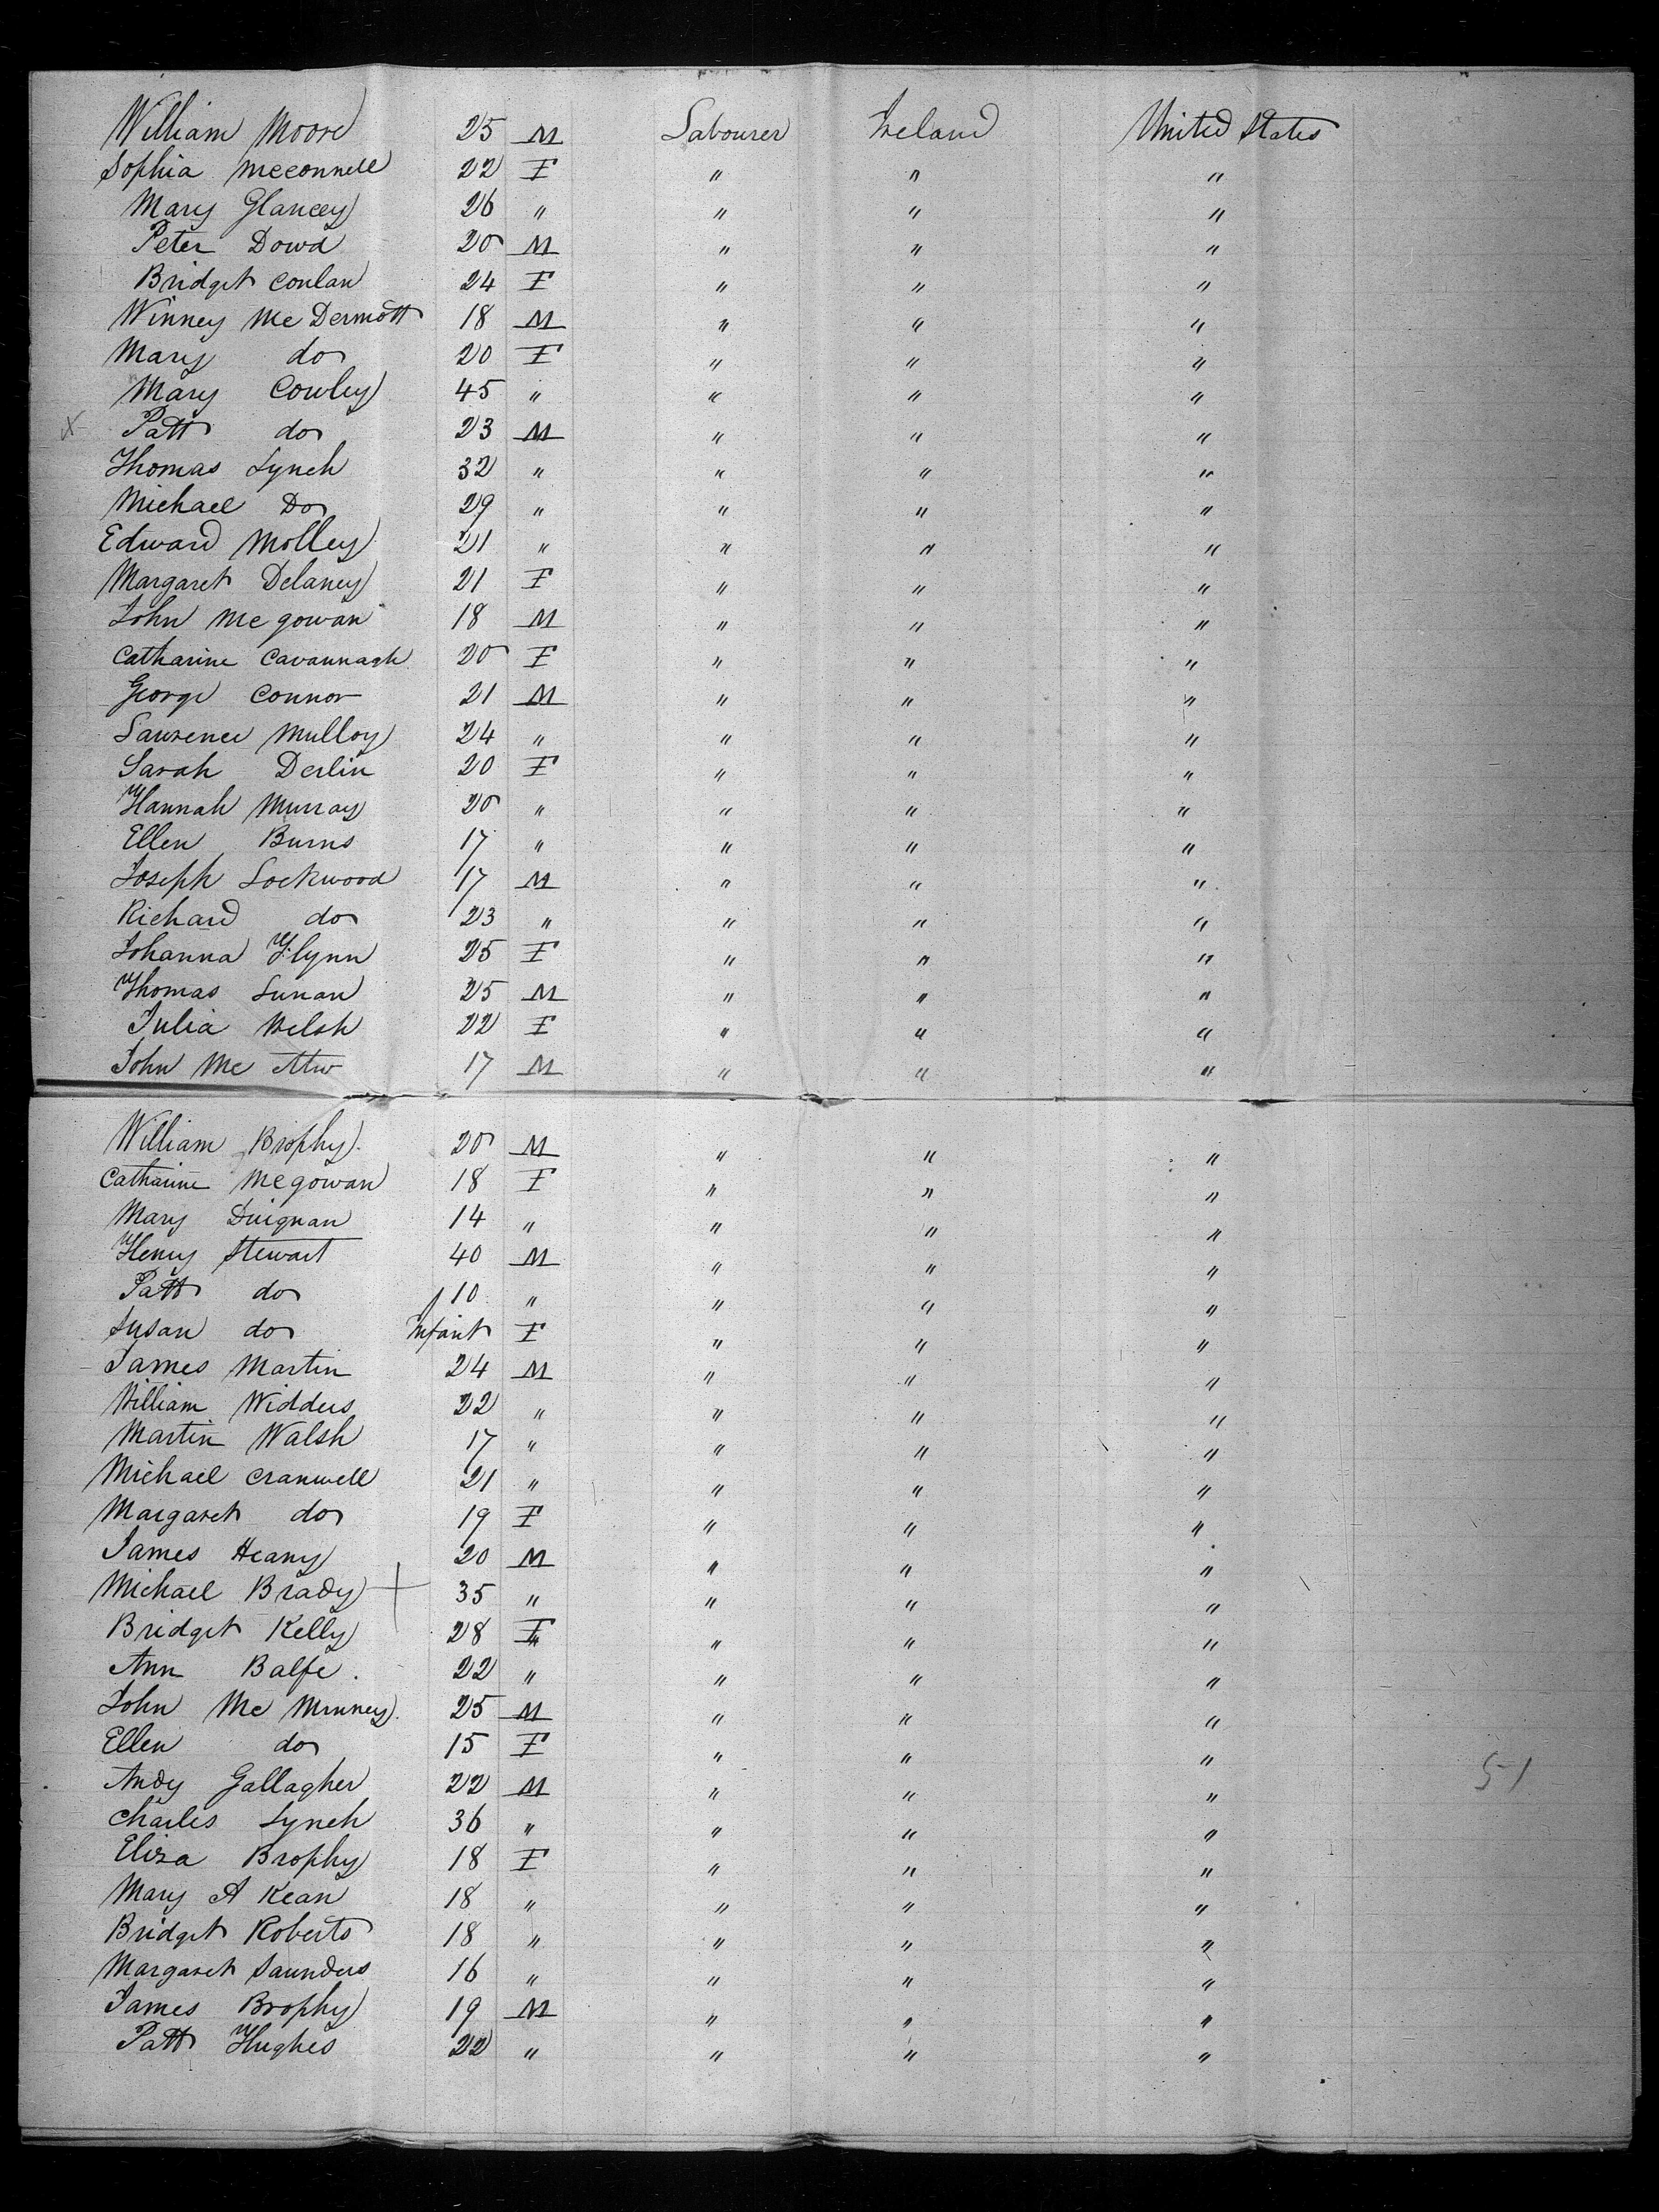 William Moore 25 M Labourer Ireland United States
Sophia McConnell 22 F " " "
Mary Glancey 26 " " " "
Peter Dowd 20 M " " "
Bridget Conlan 24 F " " "
Winney McDermott 18 M " " "
Mary do 20 F " " "
Mary Cowley 45 " " " "
x Patt do 23 M " " "
Thomas Lynch 32 " " " "
Michael Do 29 " " " "
Edward Molley 21 " " " "
Margaret Delaney 21 F " " "
John McGowan 18 M " " "
Catharine Cavannagh 20 F " " "
George Connor 21 M " " "
Lawrence Mulloy 24 " " " "
Sarah Derlin 20 F " " "
Hannah Murray 20 " " " "
Ellen Burns 17 " " " "
Joseph Lockwood 17 M " " "
Richard do 23 " " " "
Johanna Flynn 25 F " " "
Thomas Lunan 25 M " " "
Julia Welsh 22 F " " "
John Mc 17 M " " "
William Brophy 20 M " " "
Catharine McGowan 18 F " " "
Mary Duignan 14 " " " "
Henry Stewart 40 M " " "
Patt do 10 " " " "
Susan do Infant F " " "
James Martin 24 M " " "
William Widders 22 " " " "
Martin Walsh 17 " " " "
Michael Cranwell 21 " " " "
Margaret do 19 F " " "
James Heany 20 M " " "
Michael Brady + 35 " " " "
Bridget Kelly 28 F " " "
Ann Balfe. 22 " " " "
John Mc Minney 25 M " " "
Ellen do 15 F " " "
Andy Gallagher 22 M " " " 51
Charles Lynch 36 " " " "
Eliza Brophy 18 F " " "
Mary A Kean 18 " " " "
Bridget Roberts 18 " " " "
Margaret Saunders 16 " " " "
James Brophy 19 M " " "
Patt Hughes 22 " " " "